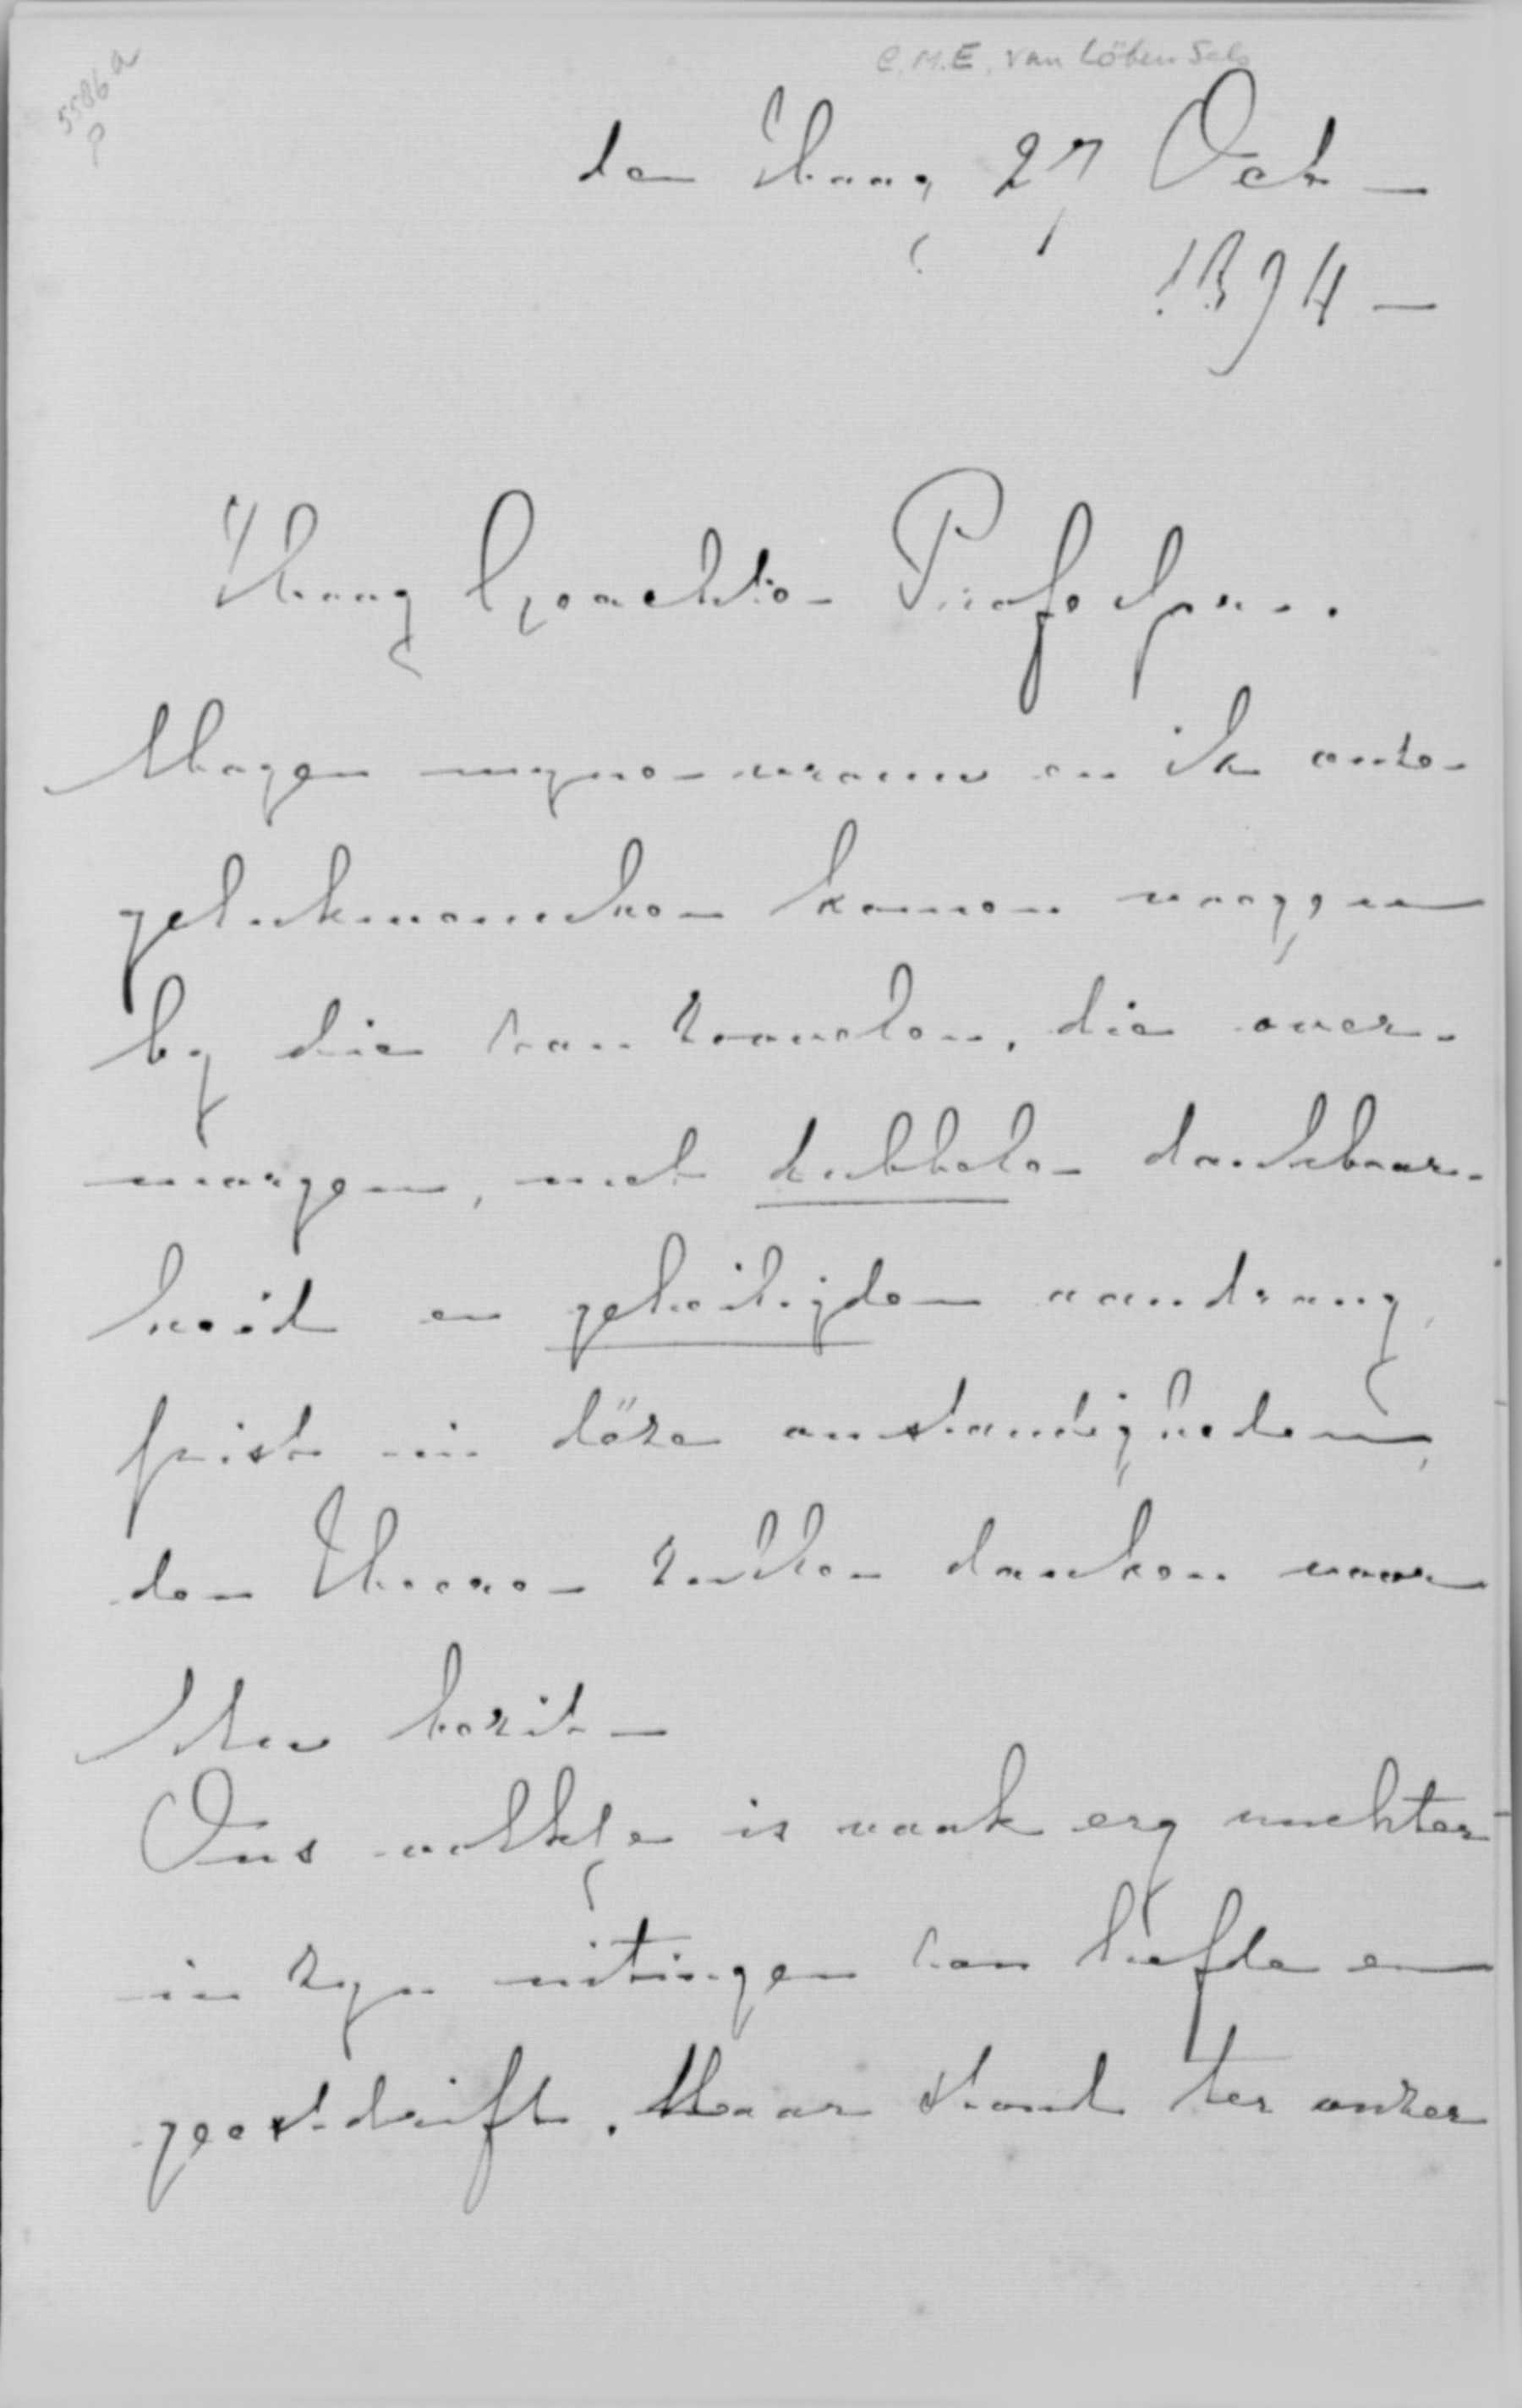 5586a
P
C.M.E. van Löben Sels
den Haag, 27 Oct -
1894 -
Hoog Geachte Professor.
Mogen myne vrouw en ik onze
gelukwenschen komen voegen
by die van zoovelen, die over-
morgen, met dubbele dankbaar-
heid en geheiligden aandrang,
juist in déze omstandigheden,
den Heere zullen danken voor
Uw bezit -
Ons volkje is vaak erg nuchter
in zyn uitingen van liefde en
geestdrift. Maar stond ter onzer